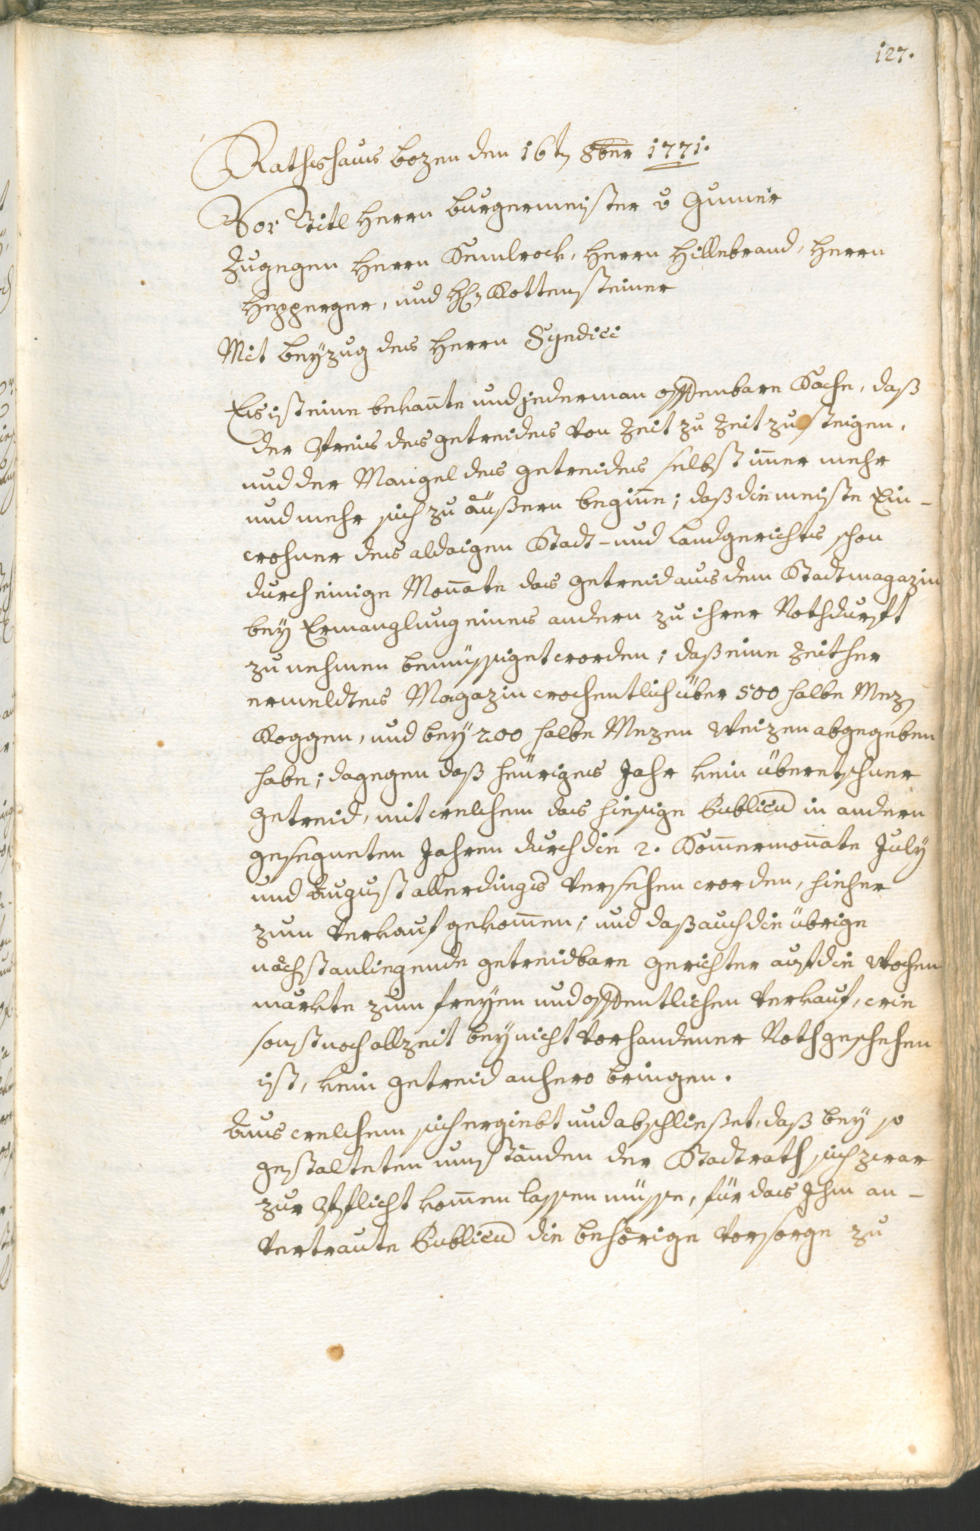 127.
Rathshaus bozen den 16tn 8ber 1771.
Vor Titl Herrn burgermeister v Gumer
Zugegen Herrn Kemlrock, Herrn Hillebrand, Herrn
Hepperger, und H Rottensteiner
Mit beÿzug des Herrn Syndici
Es ist eine bekañte und jederman offenbare Sache, daß
der Preis des getreides von Zeit zu Zeit zu steigen,
und der Mangel des getreides selbst im̄er mehr
und mehr sich zu äußern begiñe; daß die meiste Ein-
wohner des aldaigen Stadt- und Landgerichts schon
durch einige Moñate das getreid aus dem Stadtmagazin
beÿ Ermanglung eines andern zu ihrer Nothdurft
zu nehmen bemüssiget worden; daß eine Zeither
ermeldtes Magazin wochentlich über 500 halbe Mezen
Roggen, und beÿ 200 halbe Mezen Weizen abgegeben
habe; dagegen daß heuriges Jahr kein überetschner
getreid, mit welchem das hiesige Publicu in andern
gesegneten Jahren durch die 2. Som̄ermoñate Julÿ
und August allerdings versehen worden, hieher
zum verkauf gekom̄en; und daß auch die übrige
nächst anligende getreidbare gerichter auf die Wochen
märkte zum freÿen und offentlichen verkauf, wie
sonst noch allzeit beÿ nicht vorhandener Noth geschehen
ist, kein getreid anhero bringen.
Aus welchem sich ergiebt und abschließet, daß beÿ so
gestalteten umständen der Stadtrath sich zwar
zur Pflicht kom̄en lassen müsse, für das Ihm an-
vertraute Publicu die behörige Vorsorge zu